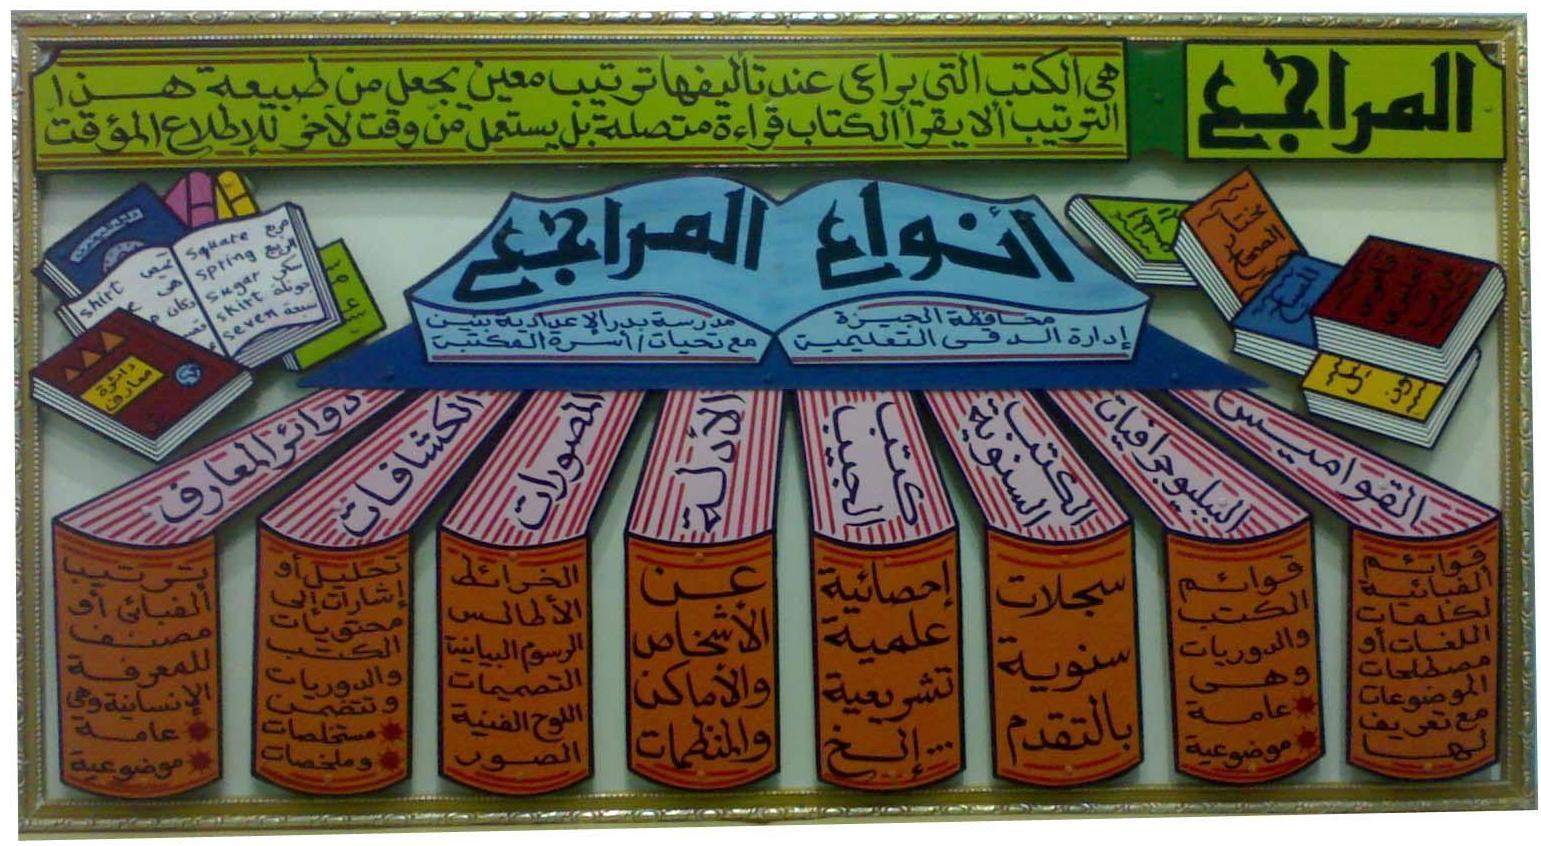 المراجع
هي الكتب التي يراعى عند تأليفها ترتيب معين يجعل من طبيعة هذا
الترتيب ألا يقرأ الكتاب قراءة متصلة بل يستعمل من وقت لآخر للإطلاع المؤقت
أنواع المراجع
محافظة الجيزة
إدارة الدقى التعليمية
مدرسة بدر الإعدادية بنين
مع تحيات / أسرة المكتبة
مختار
الصحاح
square مربع
spring الربيع
sugar سكر
skirt جونلة
seven سبعة
shirt قميص
دائرة
معارف
القواميس
قوائم
الفبائية
لكلمات
اللغات أو
مصطلحات
الموضوعات
مع تعريف
لها
الببليوجرافيات
قوائم
الكتب
والدوريات
وهى
عامة
موضوعية
الكتب
السنوية
سجلات
سنوية
بالتقدم
كتب
الحقيب
إحصائية
علمية
تشريعية
... إلخ
الأدلة
عن
الأشخاص
والأماكن
والمنظمات
المصورات
الخرائط
الأطالس
الرسوم البيانية
التصميمات
اللوح الفنية
الصور
الكشافات
تحليل أو
إشارات إلى
محتويات
الكتب
والدوريات
وتتضمن
مستخلصات
وملخصات
دوائر المعارف
بترتيب
ألفبائى أو
مصنف
للمعرفة
الإنسانية وهى
عامة
موضوعية